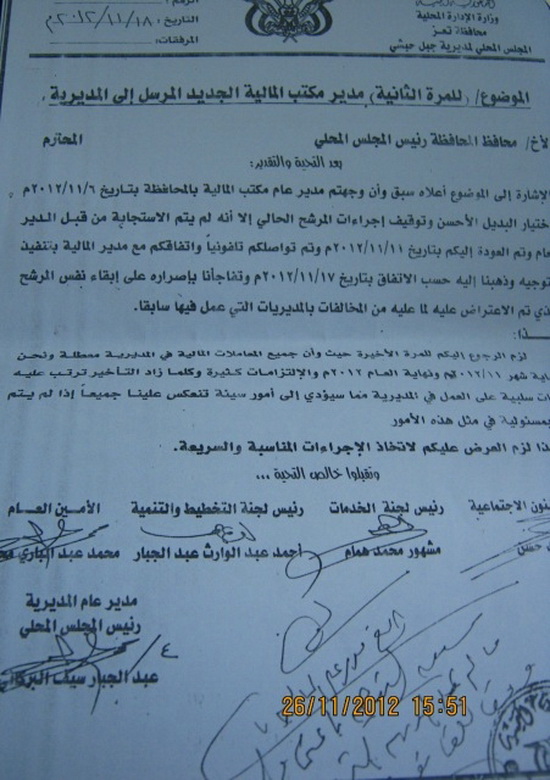 وزارة الإدارة المحلية
محافظة تعز
المجلس المحلي لمديرية جبل حبشي
الرقم:
التاريخ: ٢٠١٢/١١/١٨م
المرفقات:
الموضوع/ (للمرة الثانية) مدير مكتب المالية الجديد المرسل إلى المديرية
لأخ/ محافظ المحافظة رئيس المجلس المحلي المحترم
بعد التحية والتقدير:
الإشارة إلى الموضوع أعلاه سبق وأن وجهتم مدير عام مكتب المالية بالمحافظة بتاريخ ٢٠١٢/١١/٦م
ختيار البديل الأحسن وتوقيف إجراءات المرشح الحالي إلا أنه لم يتم الاستجابة من قبل المدير
عام وتم العودة إليكم بتاريخ ٢٠١٢/١١/١١م وتم تواصلكم تلفونياً واتفاقكم مع مدير المالية بتنفيذ
توجيه وذهبنا إليه حسب الاتفاق بتاريخ ٢٠١٢/١١/١٧م وتفاجأنا بإصراره على إبقاء نفس المرشح
ذي تم الاعتراض عليه لما عليه من المخالفات بالمديريات التي عمل فيها سابقا.
ذا:
لزم الرجوع اليكم للمرة الأخيرة حيث وأن جميع المعاملات المالية في المديرية معطلة ونحن
اية شهر ٢٠١٢/١١م ونهاية العام ٢٠١٢م والإلتزامات كثيرة وكلما زاد التأخير ترتب عليه
ات سلبية على العمل في المديرية مما سيؤدي إلى أمور سيئة تنعكس علينا جميعاً إذا لم يتم
بمسئولية في مثل هذه الأمور
ذا لزم العرض عليكم لاتخاذ الإجراءات المناسبة والسريعة.
وتقبلوا خالص التحية ...
ئون الاجتماعية رئيس لجنة الخدمات رئيس لجنة التخطيط والتنمية الأمين العام
حسن مشهور محمد همام أحمد عبد الوارث عبد الجبار محمد عبد الباري
مدير عام المديرية
رئيس المجلس المحلي
عبد الجبار سيف البركاني
26/11/2012 15:51